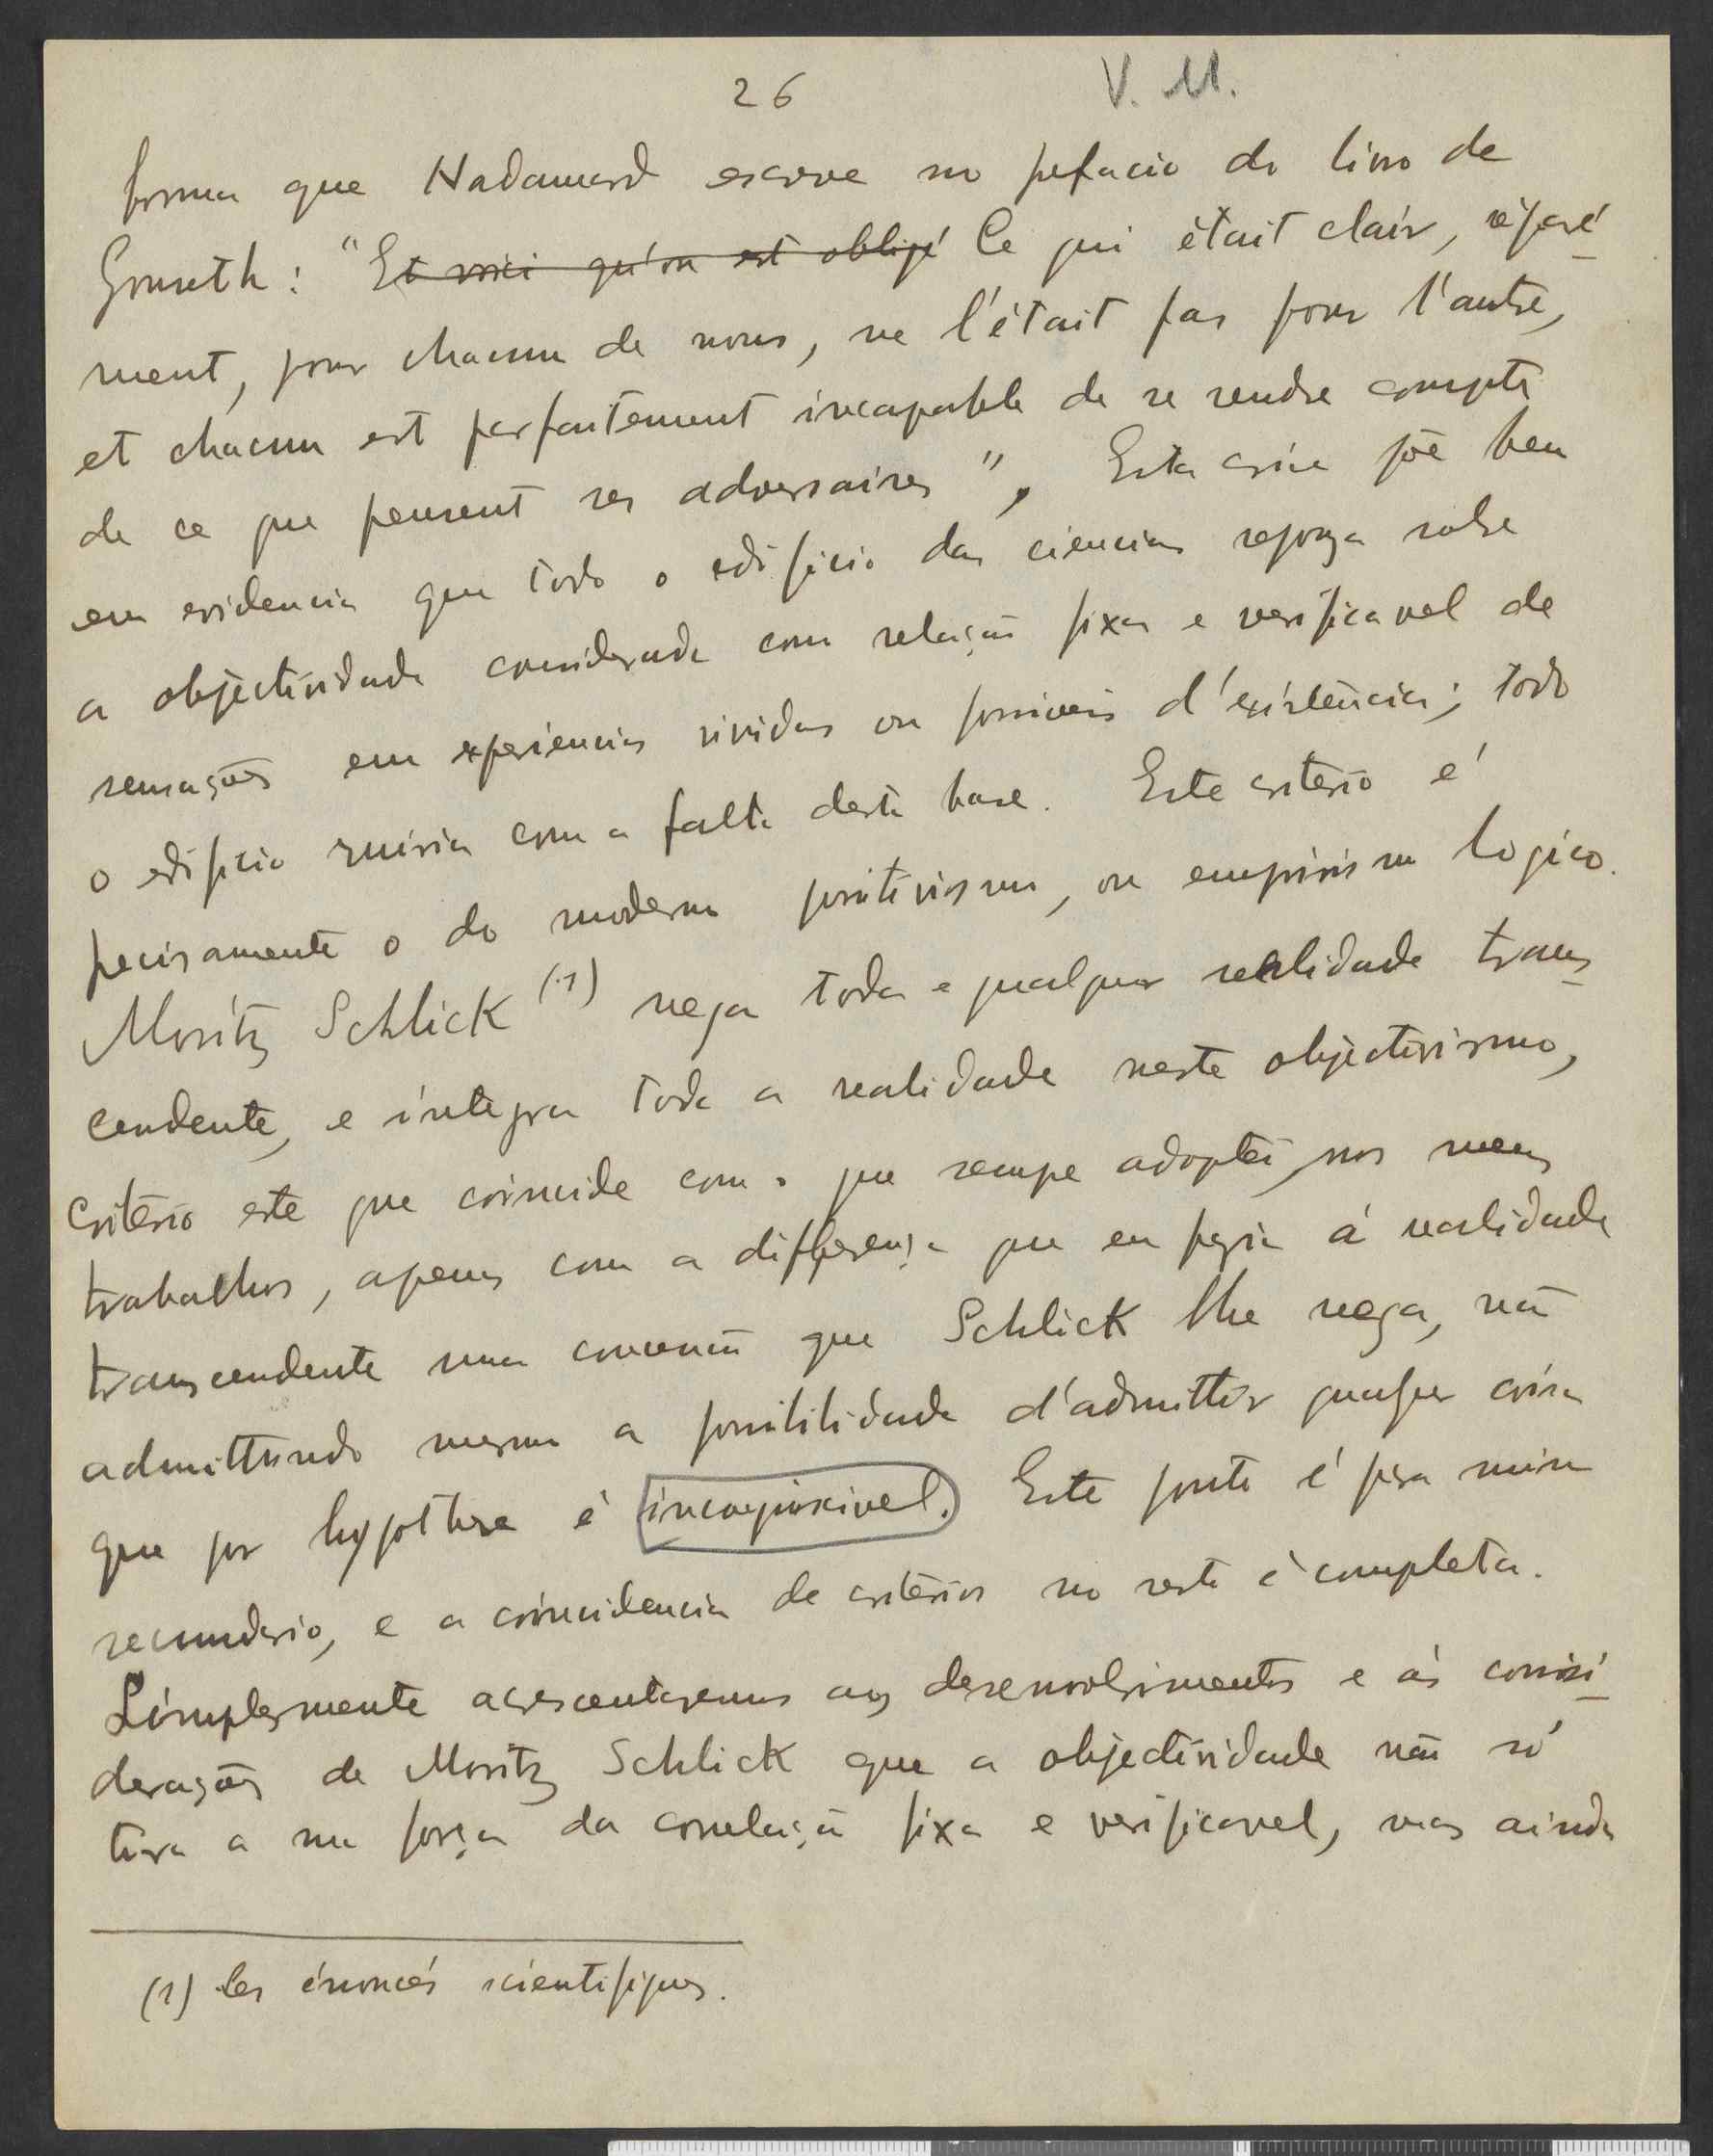 26 V. M.
forma que Hadamard escreve no prefacio do livro de
Gonseth: "Et voici qu'on est obligé Ce qui était clair, séparé-
ment, pour chacun de nous, ne l'était pas pour l'autre,
et chacun est parfaitement incapable de se rendre compte
de ce que pensent ses adversaires". Esta crise põe bem
em evidencia que todo o edificio das ciencias repousa sobre
a objectividade considerada como relação fixa e verificavel de
sensações em experiencias vividas ou possiveis d'existência; todo
o edificio ruiria com a falta desta base. Este criterio é
precisamente o do moderno positivismo, ou empirismo logico.
Moritz Schlick (1) nega toda e qualquer realidade trans-
cendente, e integra toda a realidade neste objectivismo,
criterio este que coincide com o que sempre adoptei nos meus
trabalhos, apenas com a differença que eu fazia á realidade
transcendente uma concessão que Schlick lhe nega, não
admittindo mesmo a possibilidade d'admittir qualquer coisa
que por hypothese é incognoscivel. Este ponto é para mim
secundario, e a coincidencia de criterios no resto é completa.
Simplesmente acrescentaremos aos desenvolvimentos e ás consi-
derações de Moritz Schlick que a objectividade não só
tira a sua força da correlação fixa e verificavel, mas ainda
(1) Les énoncés scientifiques.